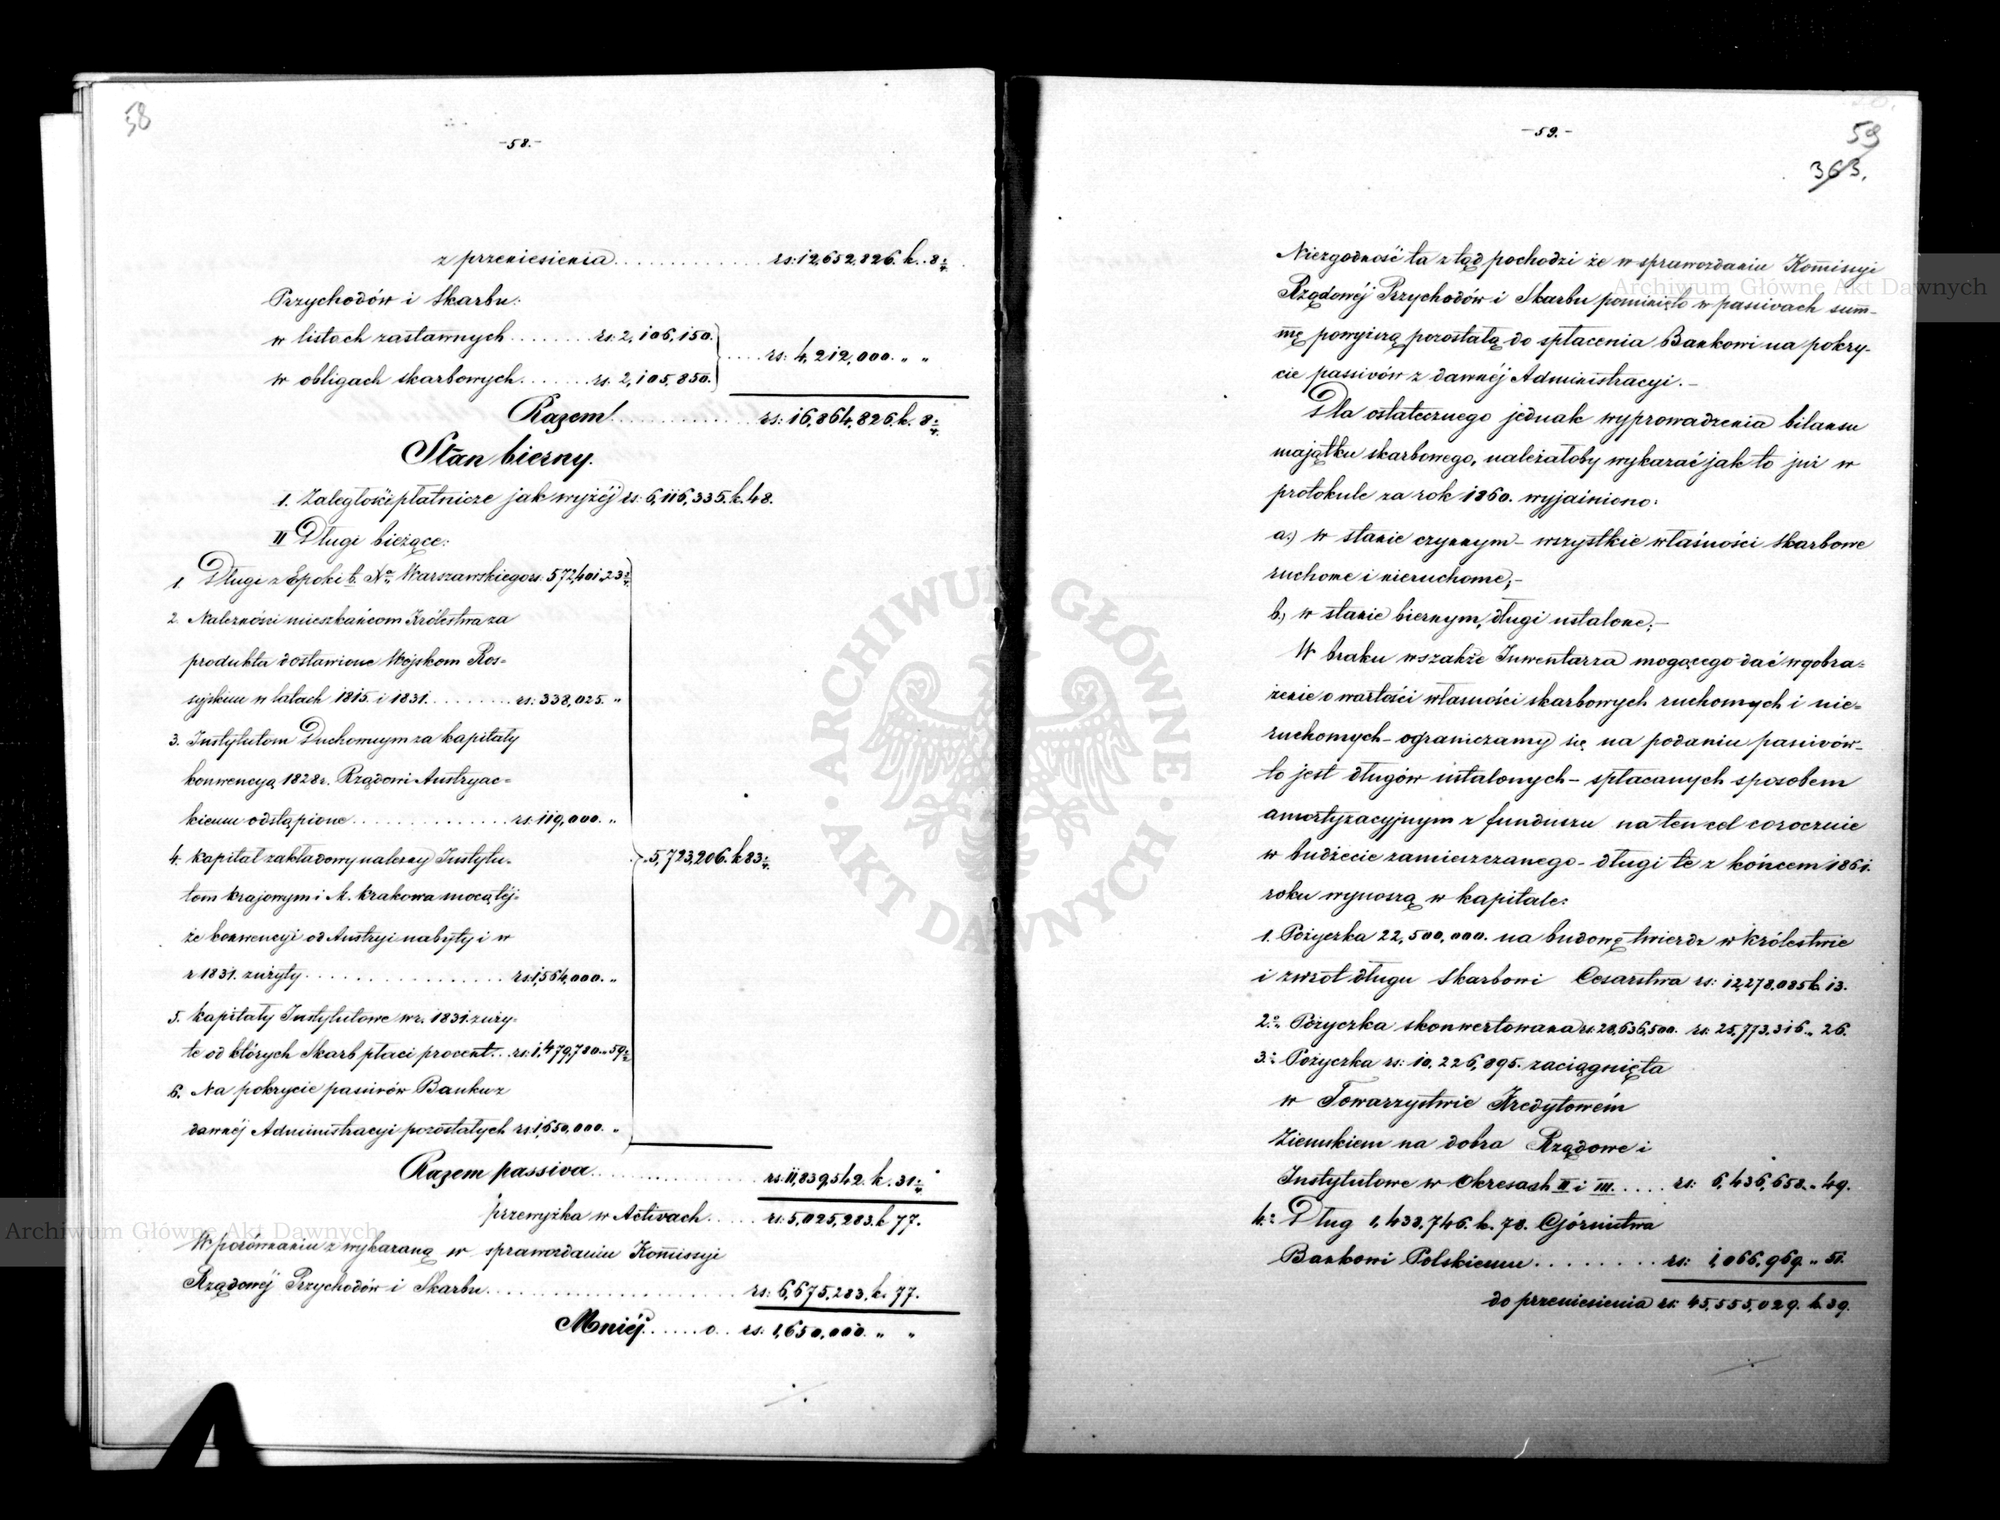 58
-58.-
z przeniesienia . . . . . . . . . . . . . rs: 12,652,826. k. 8
Przychodów i Skarbu:
w listach zastawnych . . . . . . . rs: 2,106,150.
. . . . rs: 4,212,000. " "
w obligach skarbowych . . . . . . rs: 2,105,850.
Razem . . . . . . . . . . . . rs: 16,864,826. k. 8
Stan bierny.
1. Zaległości płatnicze jak wyżej rs: 6,116,335. k. 48.
II Długi bieżące:
1. Długi z Epoki b. Xa Warszawskiego rs: 572,401. 23
2. Należności mieszkańcom Królestwa za
produkta dostawione Wojskom Ros=
syjskim w latach 1815. i 1831. . . . . . . . . rs: 338,025. "
3. Instytutom Duchownym za kapitały
konwencyą 1828 r. Rządowi Austryac=
kiemu odstąpione . . . . . . . . . . . . . . rs: 119,000. "
4. Kapitał zakładowy należny Instytu-
. 5,723,206. k 83
tom krajowym i M. Krakowa mocą téj-
że konwencyi od Austryi nabyty i w
r 1831. zużyty . . . . . . . . . . . . . . . rs: 1,564,000. "
5. Kapitały Instytutowe w r. 1831. zuży-
te od których Skarb płaci procent. . . rs: 1,479,780. " 59
6. Na pokrycie passivów Banku z
dawnéj Administracyi pozostałych rs: 1,650,000. "
Razem passiva . . . . . . . . . . . . . rs: 11,839,542. k. 31
przewyżka w Activach . . . . . rs: 5,025,283. k 77.
W porównaniu z wykazaną w sprawozdaniu Kommissyi
Rządowéj Przychodów i Skarbu . . . . . . . . . . . . . . . . . . rs: 6,675,283. k. 77.
Mniéj . . . . . . o . . rs: 1,650,000. " "
-59.-
59
363.
Niezgodność ta ztąd pochodzi że w sprawozdaniu Kommissyi
Rządowéj Przychodów i Skarbu pominięto w passivach sum-
mę powyższą pozostałą do spłacenia Bankowi na pokry-
cie passivów z dawnéj Administracyi. -
Dla ostatecznego jednak wyprowadzenia bilansu
majątku skarbowego, należałoby wykazać jak to już w
protokule za rok 1860. wyjaśniono:
a.) w stanie czynnym - wszystkie własności Skarbowe
ruchome i nieruchome; -
b.) w stanie biernym, długi ustalone; -
W braku wszakże Inwentarza mogącego dać wyobra=
żenie o wartości własności skarbowych ruchomych i nie=
ruchomych - ograniczamy się na podaniu passivów -
to jest długów ustalonych - spłacanych sposobem
amortyzacyjnym z funduszu na ten cel corocznie
w budżecie zamieszczanego - długi te z końcem 1861.
roku wynoszą w kapitale:
1. Pożyczka 22,500,000. na budowę twierdz w Królestwie
i zwrot długu Skarbowi Cesarstwa rs: 12,278,085 k. 13.
2. Pożyczka skonwertowana rs: 28,636,500. rs: 25,773,316 " 26.
3. Pożyczka rs: 10,226,895. zaciągnięta
w Towarzystwie Kredytowém
Ziemskiem na dobra Rządowe i
Instytutowe w Okresach II i III. . . . . rs: 6,436,658. " 49.
4. Dług 1,438,746. k. 78. Górnictwa
Bankowi Polskiemu . . . . . . . . rs: 1,066,969. " 51.
do przeniesienia rs: 45,555,029. k. 39.
Archiwum Główne Akt Dawnych
ARCHIWUM GŁÓWNE · AKT DAWNYCH ·
Archiwum Główne Akt Dawnych